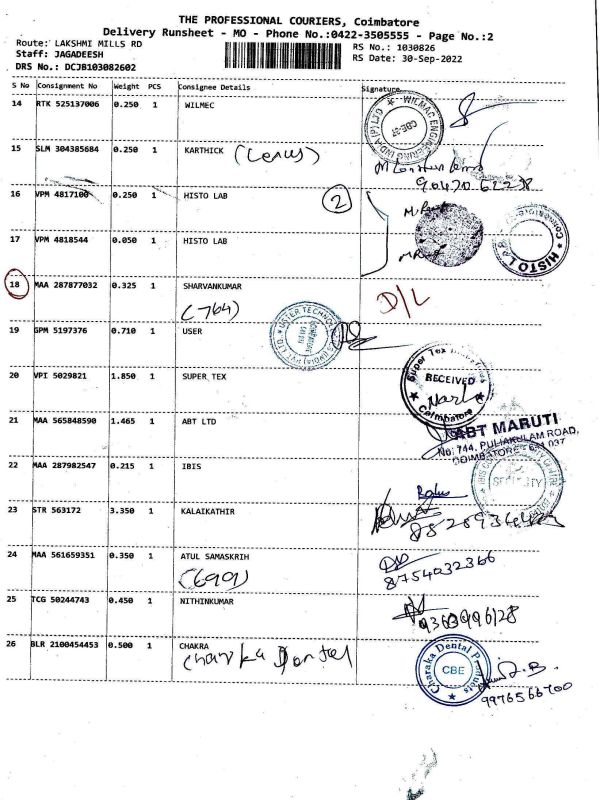 THE PROFESSIONAL COURIERS, Coimbatore
Delivery Runsheet - MO - Phone No.:0422-3505555 - Page No.:2
Route: LAKSHMI MILLS RD
Staff: JAGADEESH
DRS No.: DCJB103082602
RS No.: 1030826
RS Date: 30-Sep-2022
S No Consignment No Weight PCS Consignee Details Signature
14 RTK 525137006 0.250 1 WILMEC
WILMAC ENGINEERING INDIA (P) LTD
15 SLM 304385684 0.250 1 KARTHICK
16 VPM 4817100 0.250 1 HISTO LAB 2
17 VPM 4818544 0.050 1 HISTO LAB
HISTO LAB
18 MAA 287877032 0.325 1 SHARVANKUMAR D/L
(764)
19 GPM 5197376 0.710 1 USER
20 VPI 5029821 1.850 1 SUPER TEX
Super Tex
RECEIVED
Coimbatore
21 MAA 565848590 1.465 1 ABT LTD
ABT MARUTI
No: 744, PULIAKULAM ROAD,
COIMBATORE - 641 037
22 MAA 287982547 0.215 1 IBIS
SECURITY
23 STR 563172 3.350 1 KALAIKATHIR
24 MAA 561659351 0.350 1 ATUL SAMASKRIH
8754032366
25 TCG 50244743 0.450 1 NITHINKUMAR
9363996128
26 BLR 2100454453 0.500 1 CHAKRA
Charaka Dental Products
CBE
9976566700